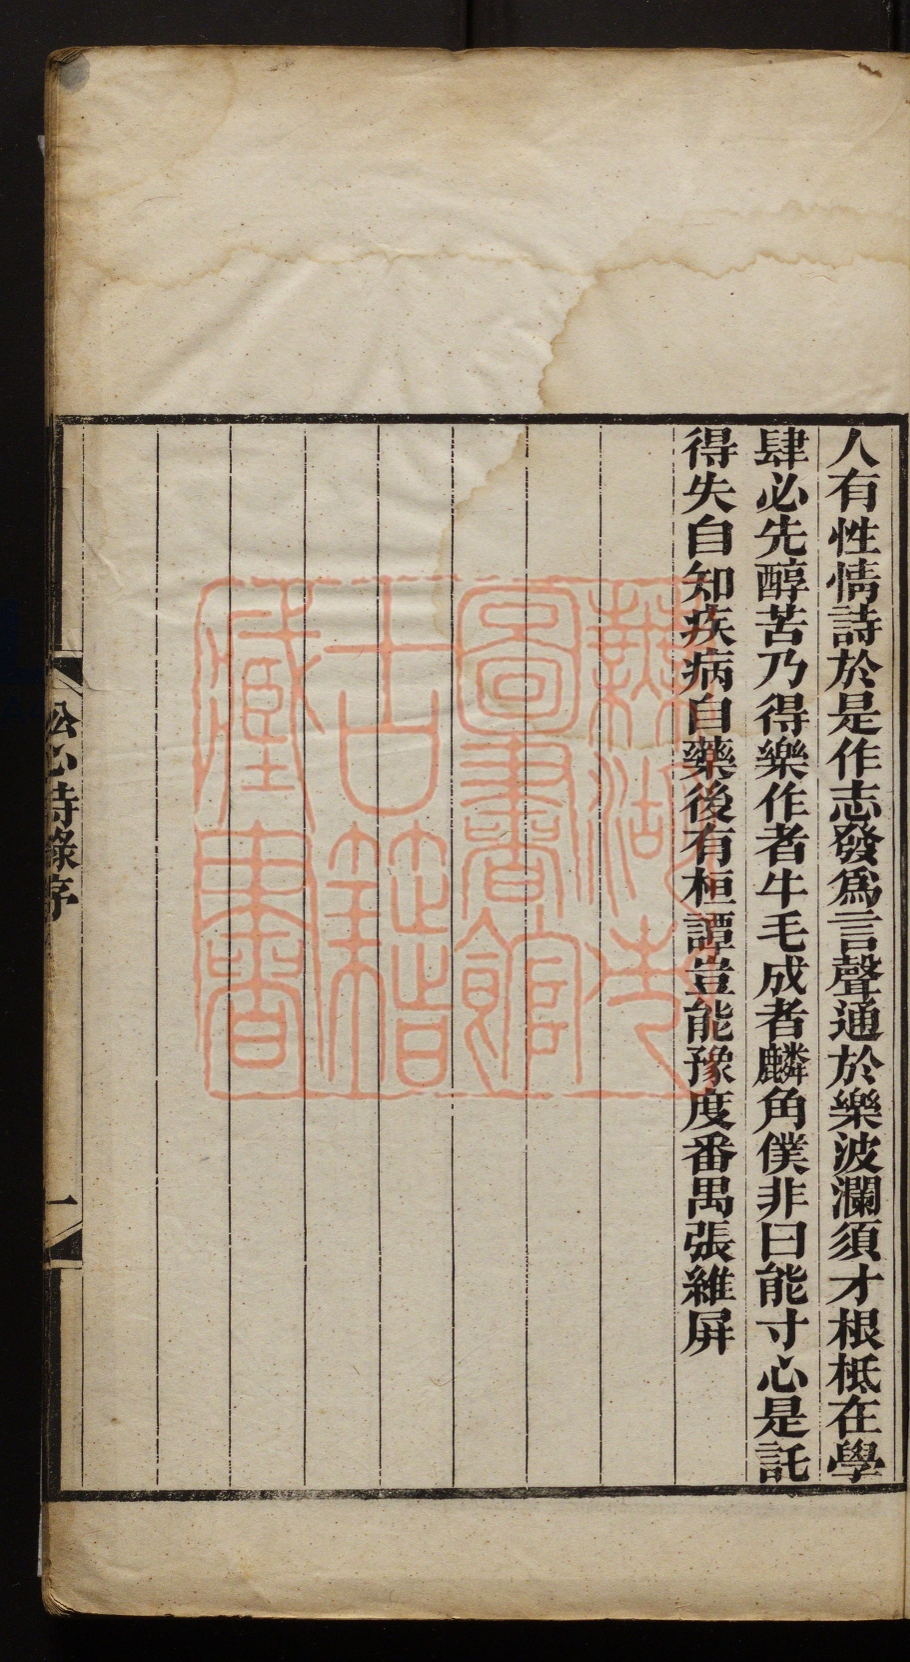 人有性情詩於是作志發爲言聲通於樂波瀾須才根柢在學
肆必先醇苦乃得樂作者牛毛成者麟角僕非曰能寸心是託
得失自知疾病自藥後有桓譚豈能豫度番禺張維屏
松心詩錄序
一
蕪湖市
圖書館
古籍
藏書